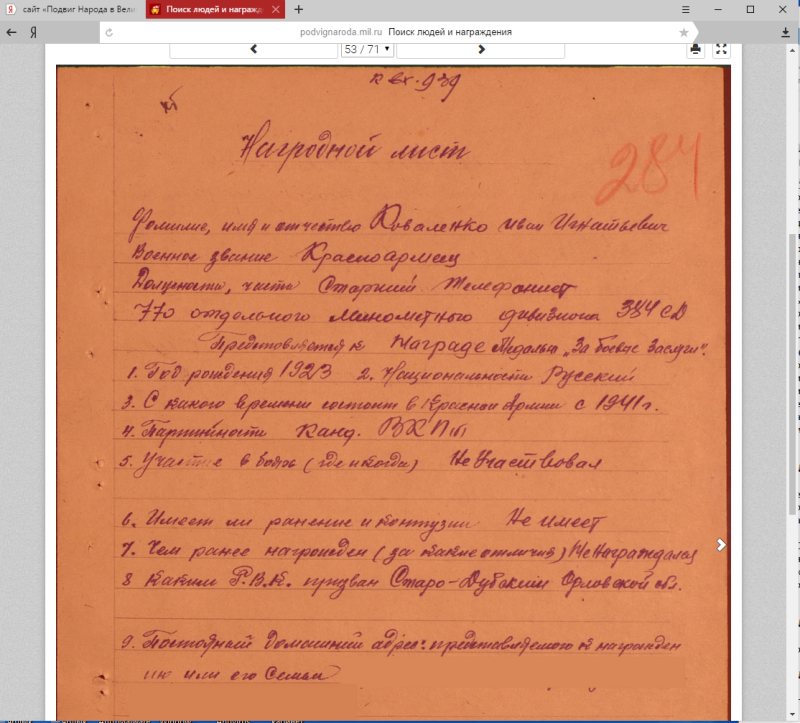 сайт «Подвиг Народа в Вели
Поиск людей и награжд
podvignaroda.mil.ru Поиск людей и награждения
53 / 71
к вх. 939
Наградной лист
284
Фамилие, имя и отчество Коваленко Иван Игнатьевич
Военное звание Красноармеец
Должность, часть Старший Телефонист
770 отдельного Минометного дивизиона 384 СД
Представляется к Награде Медалью „За боевые Заслуги".
1. Год рождения 1923 2. Национальность Русский
3. С какого времени состоит в Красной Армии с 1941 г.
4. Партийность Канд. ВКП(б)
5. Участие в боях (где и когда) Не Участвовал
6. Имеет ли ранение и контузии Не имеет
7. Чем ранее награжден (за какие отличия) Не Награждался
8 Каким Р.В.К. призван Старо-Дубским Орловской обл.
9. Постояный Домашний адрес: представляемого к награжден
ию или его Семьи